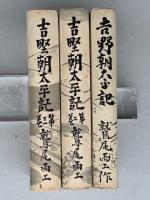 吉野朝太平記
第二巻
鷲尾雨工
吉野朝太平記
第一巻
鷲尾雨工
吉野朝太平記
鷲尾雨工作